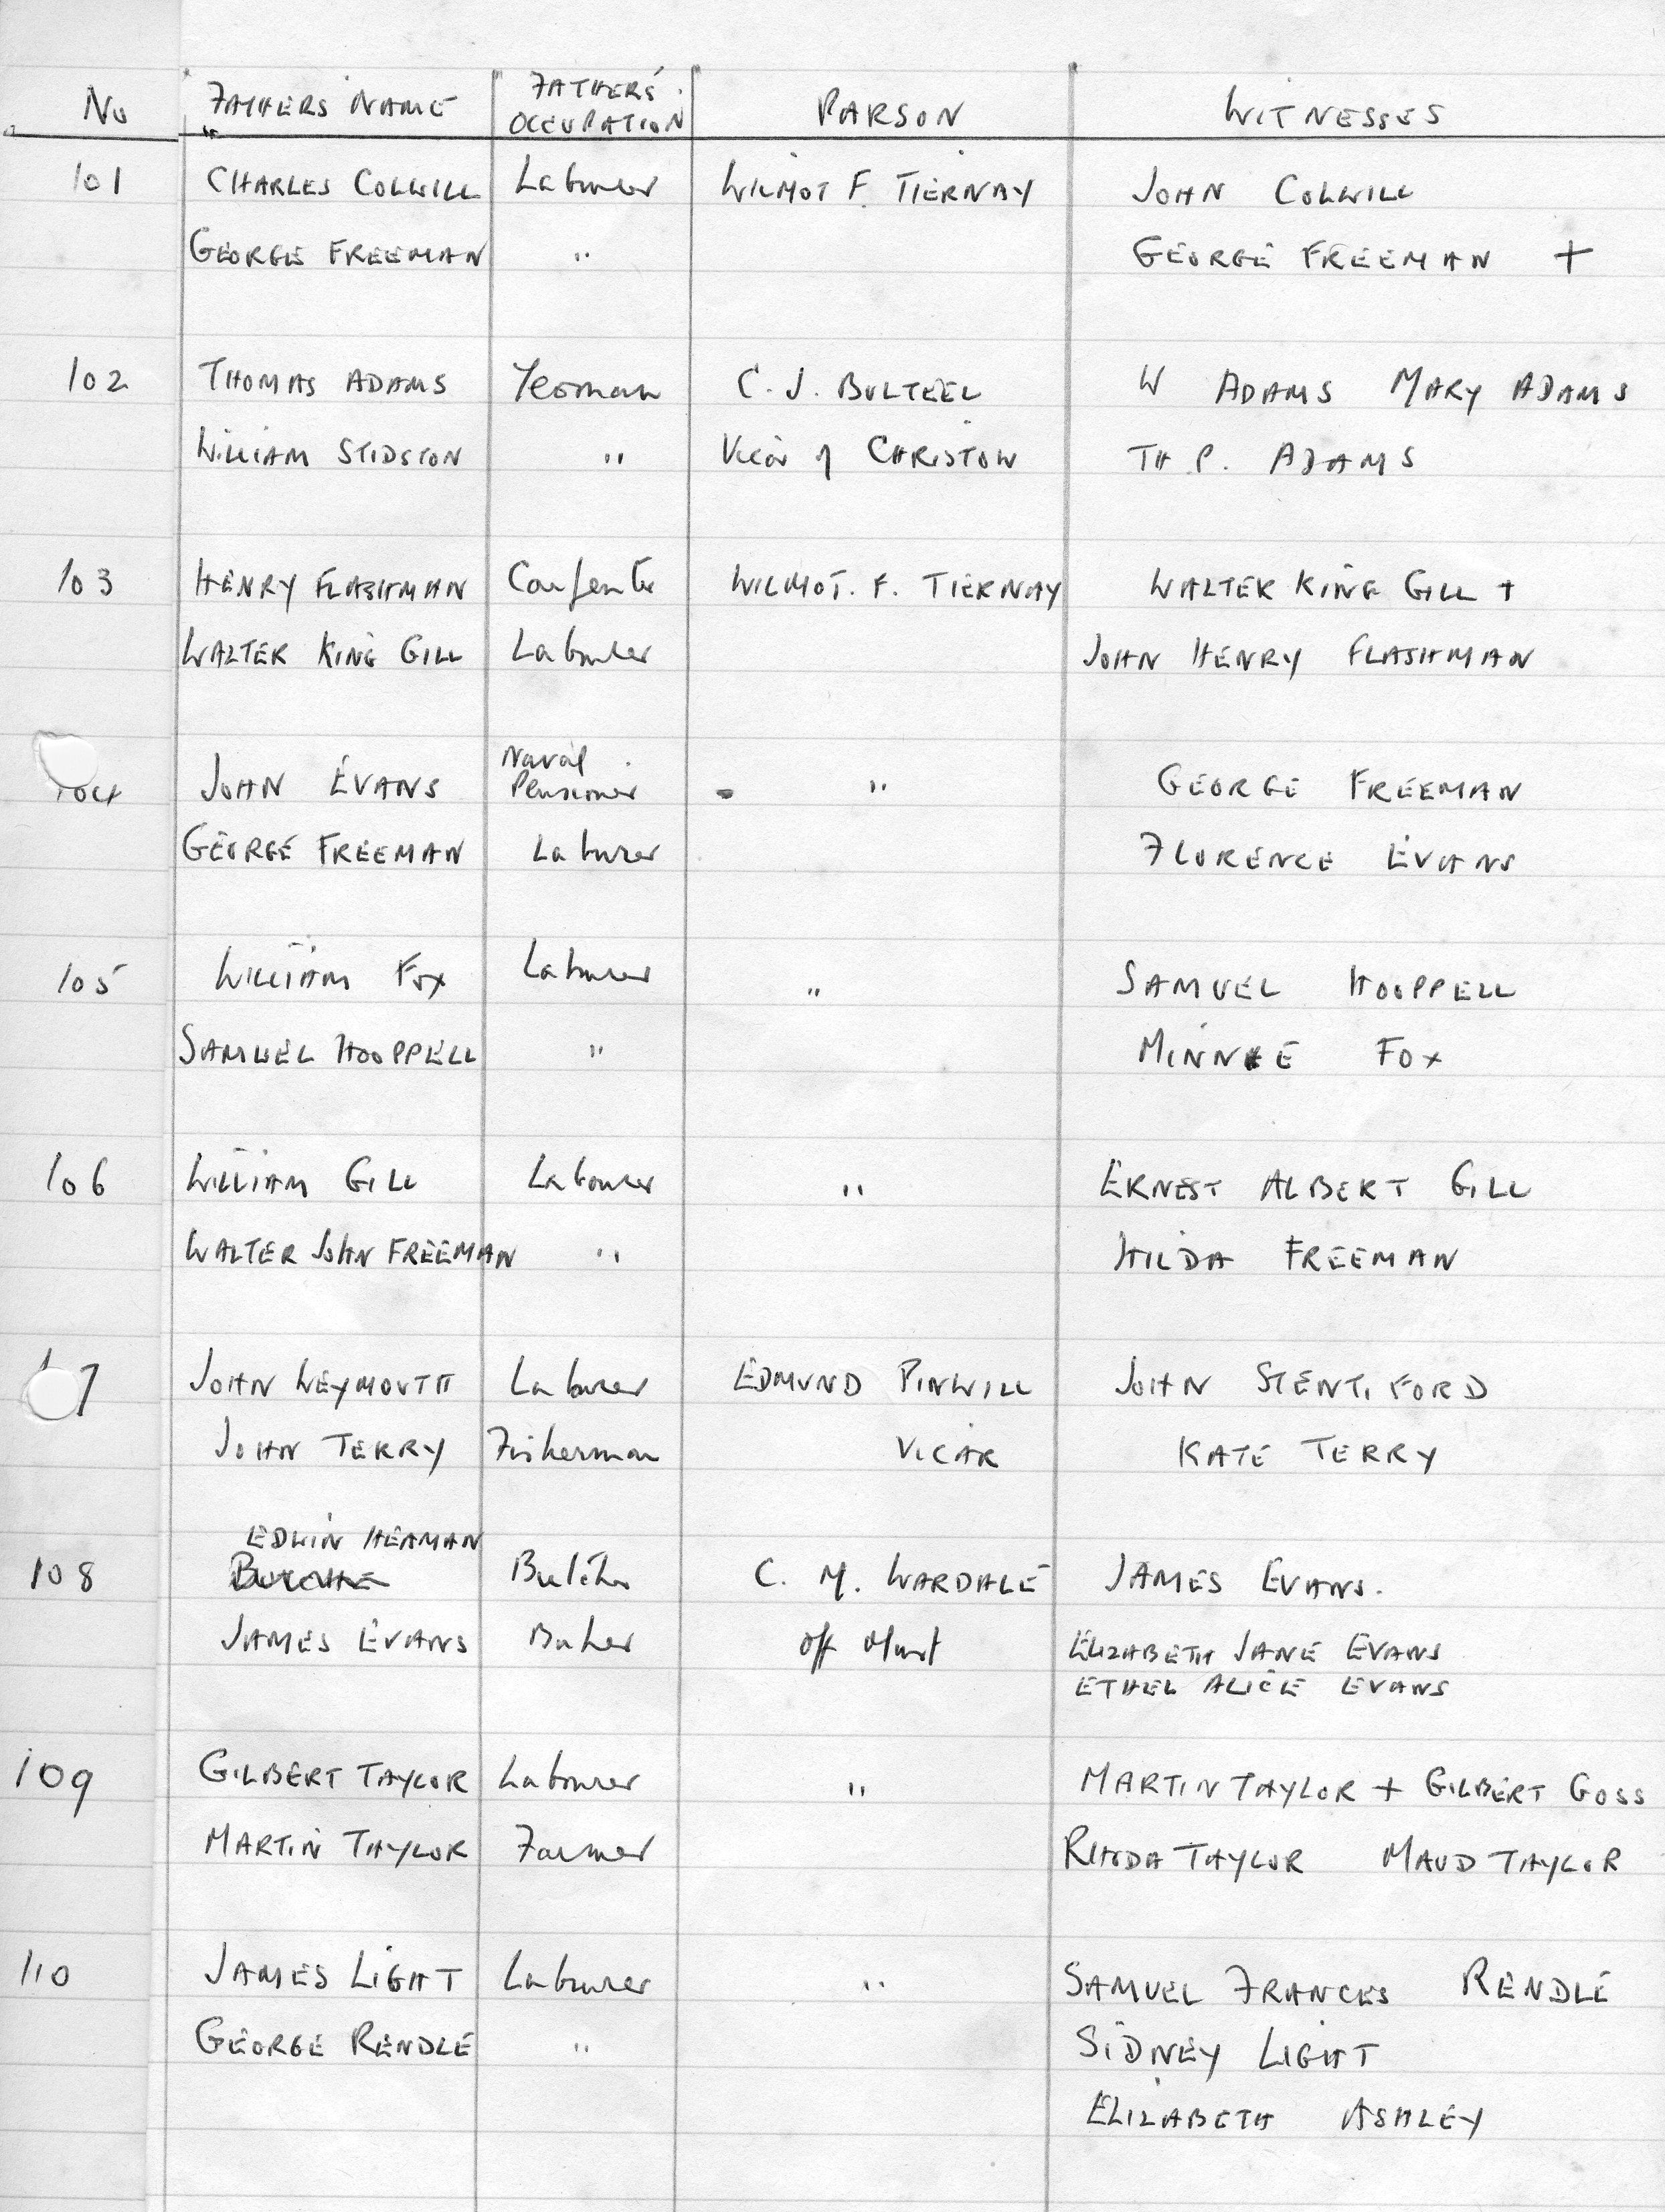 No FATHERS NAME FATHERS' OCCUPATION PARSON WITNESSES
101 CHARLES COLWILL Labourer WILMOT F. TIERNAY JOHN COLWILL
GEORGE FREEMAN " GEORGE FREEMAN +
102 THOMAS ADAMS Yeoman C. J. BULTEEL W ADAMS MARY ADAMS
WILLIAM STIDSTON " Vicar of CHRISTOW TH P. ADAMS
103 HENRY FLASHMAN Carpenter WILMOT. F. TIERNAY WALTER KING GILL +
WALTER KING GILL Labourer JOHN HENRY FLASHMAN
104 JOHN EVANS Naval Pensioner " GEORGE FREEMAN
GEORGE FREEMAN Labourer FLORENCE EVANS
105 WILLIAM FOX Labourer " SAMUEL HOOPPELL
SAMUEL HOOPPELL " MINNIE FOX
106 WILLIAM GILL Labourer " ERNEST ALBERT GILL
WALTER JOHN FREEMAN " HILDA FREEMAN
7 JOHN WEYMOUTH Labourer EDMUND PINWILL JOHN STENTIFORD
JOHN TERRY Fisherman VICAR KATE TERRY
EDWIN HEAMAN
108 Butcher C. M. WARDALE JAMES EVANS.
JAMES EVANS Baker Off Minst ELIZABETH JANE EVANS
ETHEL ALICE EVANS
109 GILBERT TAYLOR Labourer " MARTIN TAYLOR + GILBERT GOSS
MARTIN TAYLOR Farmer RHODA TAYLOR MAUD TAYLOR
110 JAMES LIGHT Labourer " SAMUEL FRANCES RENDLE
GEORGE RENDLE " SIDNEY LIGHT
ELIZABETH ASHLEY